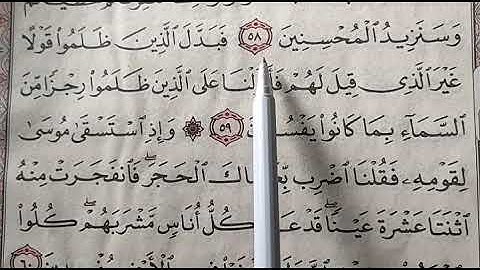 وَسَنَزِيدُ ٱلْمُحْسِنِينَ ٥٨ فَبَدَّلَ ٱلَّذِينَ ظَلَمُوا۟ قَوْلًا
غَيْرَ ٱلَّذِى قِيلَ لَهُمْ عَلَى ٱلَّذِينَ ظَلَمُوا۟ رِجْزًا مِّنَ
ٱلسَّمَآءِ بِمَا كَانُوا۟ ٥٩ ۞ وَإِذِ ٱسْتَسْقَىٰ مُوسَىٰ
لِقَوْمِهِۦ فَقُلْنَا ٱضْرِب ٱلْحَجَرَ ۖ فَٱنفَجَرَتْ مِنْهُ
ٱثْنَتَا عَشْرَةَ عَيْنًا ۖ قَدْ كُلُّ أُنَاسٍ مَّشْرَبَهُمْ ۖ كُلُوا۟
٦٠